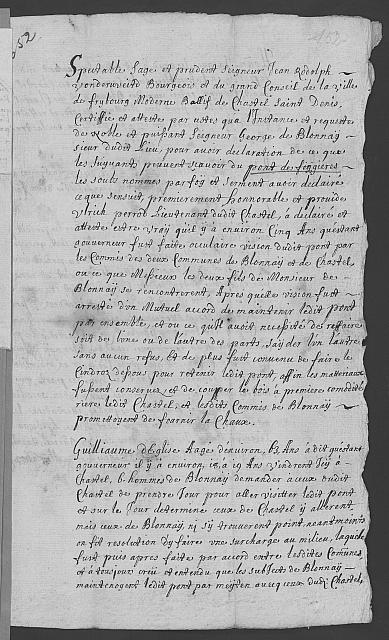 452
452
Spectable Sage et prudent Seigneur Jean Rodolph
Vonderweidt Bourgeois et du grand Conseil de la Ville
de frybourg Moderne Ballif de Chastel Saint Denis,
Certiffie et atteste par cestes qua l'Instance et requeste
de Noble et puissant Seigneur George de Blonnaÿ
sieur dudit lieu, pour avoir declaration de ce que
les suyvants peuvent scavoir du pont des fingieres
les soubs nommes par foÿ et serment avoir declairé
ce que sensuit, premierement honnorable et provide
Ulrich perrod Lieutenant dudit Chastel, a declairé et
attesté estre vraÿ quil ÿ a environ Cinq Ans questant
gouverneur fust faite oculaire vision dudit pont par
les Commis des deux Communes de Blonnaÿ et de Chastel
ou ce que Messieurs les deux fils de Monsieur de
Blonnaÿ se rencontrerent, Apres quelle vision fust
arresté d'un Mutuel accord de maintenir ledit pont
par ensemble, et ou ce qu'il auroit necessité de reffaire
soit de l'une ou de l'autre des parts, s'ayder l'un l'autre
sans aucun refus, et de plus fust convenu de faire le
Cindroz dessous pour retenir ledit pont, affin les materiaux
fussent conservez, et de coupper les bois a premiere comodité
riere ledit Chastel, et lesdits Commis de Blonnaÿ
promettoyent de fournir la Chaux.
Guilliaume d'Eglise Aagé denviron, 63, Ans a dit questant
gouverneur il ÿ a environ, 18, a 19 Ans vendrent Icÿ a
Chastel, 6 hommes de Blonnaÿ demander a ceux dudit
Chastel de prendre Jour pour aller visitter ledit pont
et sur le Jour determiné ceux de Chastel ÿ allerent
mais ceux de Blonnaÿ, nÿ s'ÿ trouverent point, neantmoins
on fit resolution dÿ faire une surcharge au milieu, laquelle
fust puis apres faite par accord entre lesdites Comunes,
et a tousjour creu et entendu que les subjects de Blonnaÿ
maintenoyent ledit pont par meytten avecq ceux dudit Chastel,